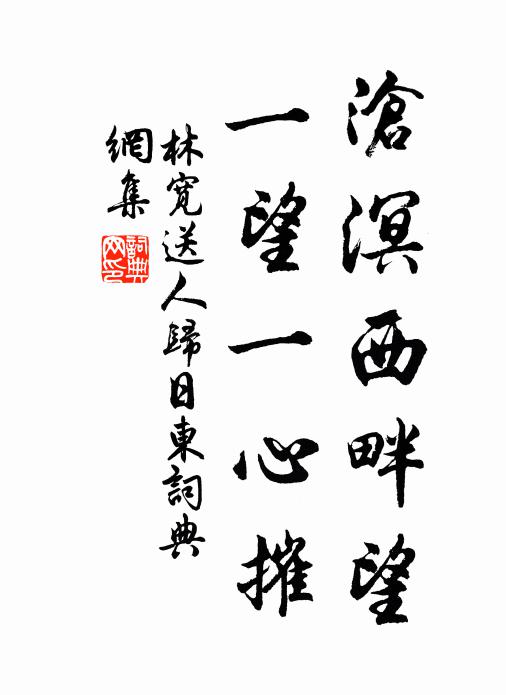 滄溟西畔望
一望一心摧
林寬送人歸日東詞典
網集
詞典網印